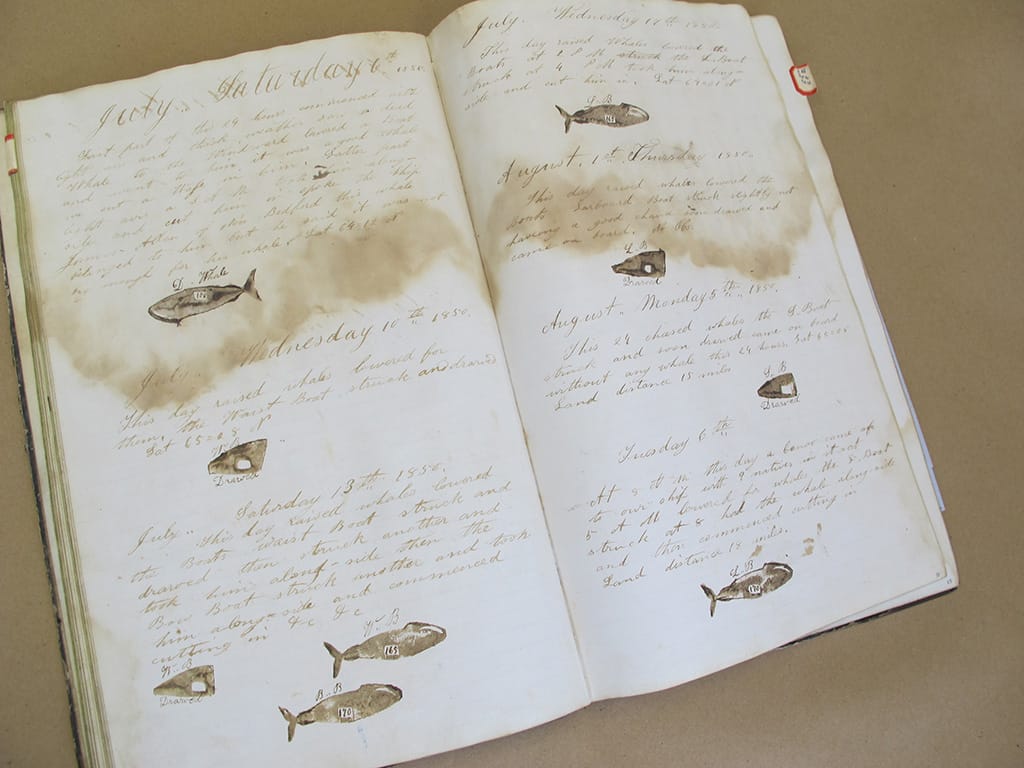 July.. Saturday 6th 1850.
First part of the 24 hours commenced with
light and thick weather saw a dead
Whale to the Windward lowered a Boat
and went to him it was a good Whale
in put a Waif in him. Latter part
light airs and cut him in spoke the Ship
Junior Allen of New Bedford this whale
belonged to him but he said it was not
D.. Whale
July.. Wednesday 10th 1850.
This day raised whales lowered for
them, the Waist Boat struck and drawed
Lat 65=08
Drawed
July.. Saturday 13th 1850.
This day raised whales lowered
the Boats Waist Boat struck and
drawed then struck another and
took him along-side then the
Bow Boat struck another and took
him along side and commenced
cutting in &c &c
W.. B
Drawed
W.. B
165
B.. B
170
July.. Wednesday 17th 1850.
This day raised Whales lowered the
Boats at 1 P M struck the L. Boat
struck at 4 P M took him along-
side and cut him in.
L.. B
August. 1st Thursday 1850.
This day raised whales lowered the
Boats Larboard Boat struck slightly not
having a good chance soon drawed and
came on board.
L.. B
Drawed
August.. Monday 5th.. 1850.
This 24 chased whales the L. Boat
struck and soon drawed came on board
without any whale this 24 hours Lat
Land distance 15 miles
L.. B
Drawed
Tuesday 6th
At 8 this day a canoe came of
to our ship with 9 natives in it at
5 A M lowered for whales the L. Boat
struck at 8 had the whale along-side
and then commenced cutting in
Land distance 18 miles.
L.. B
170